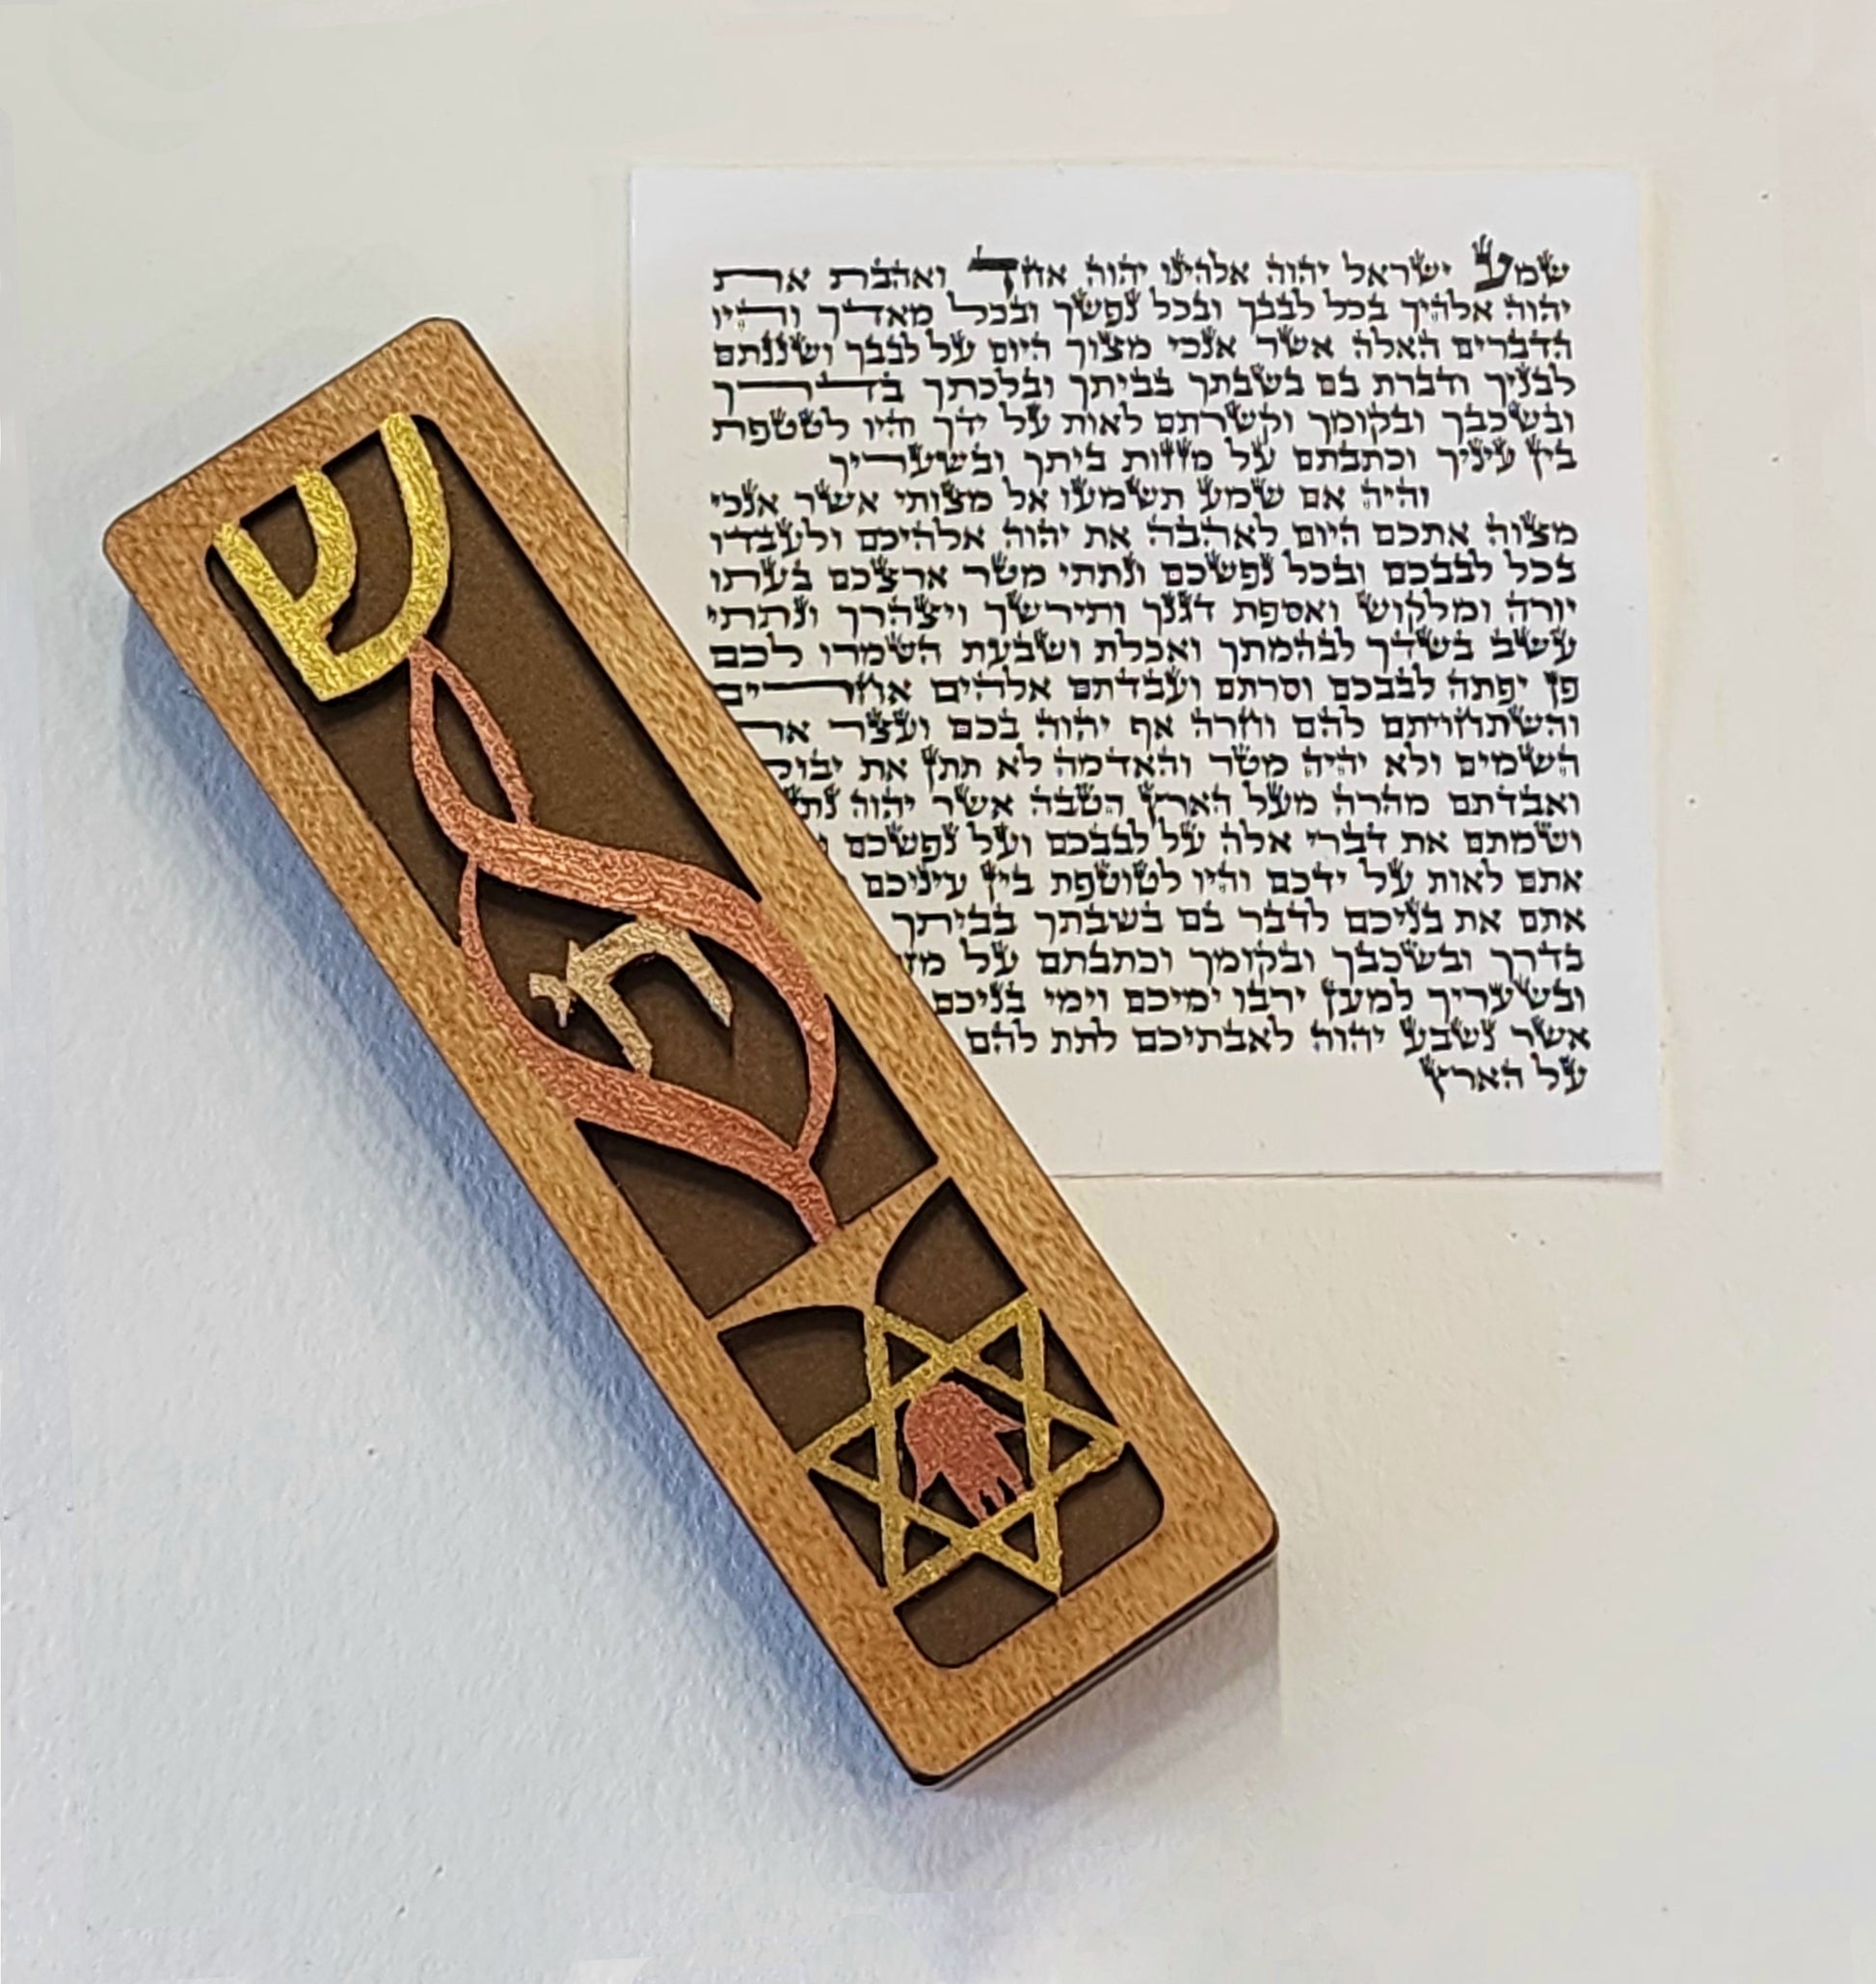 ש
חי
שמע ישראל יהוה אלהינו יהוה אחד ואהבת את
יהוה אלהיך בכל לבבך ובכל נפשך ובכל מאדך והיו
הדברים האלה אשר אנכי מצוך היום על לבבך ושננתם
לבניך ודברת בם בשבתך בביתך ובלכתך בדרך
ובשכבך ובקומך וקשרתם לאות על ידך והיו לטטפת
בין עיניך וכתבתם על מזזות ביתך ובשעריך
והיה אם שמע תשמעו אל מצותי אשר אנכי
מצוה אתכם היום לאהבה את יהוה אלהיכם ולעבדו
בכל לבבכם ובכל נפשכם ונתתי מטר ארצכם בעתו
יורה ומלקוש ואספת דגנך ותירשך ויצהרך ונתתי
עשב בשדך לבהמתך ואכלת ושבעת השמרו לכם
פן יפתה לבבכם וסרתם ועבדתם אלהים אחרים
והשתחויתם להם וחרה אף יהוה בכם ועצר את
השמים ולא יהיה מטר והאדמה לא תתן את
ואבדתם מהרה מעל הארץ הטבה אשר יהוה
ושמתם את דברי אלה על לבבכם ועל נפשכם
אתם לאות על ידכם והיו לטוטפת בין עיניכם
אתם את בניכם לדבר בם בשבתך בביתך
בדרך ובשכבך ובקומך וכתבתם על
ובשעריך למען ירבו ימיכם וימי בניכם
אשר נשבע יהוה לאבתיכם לתת להם
על הארץ